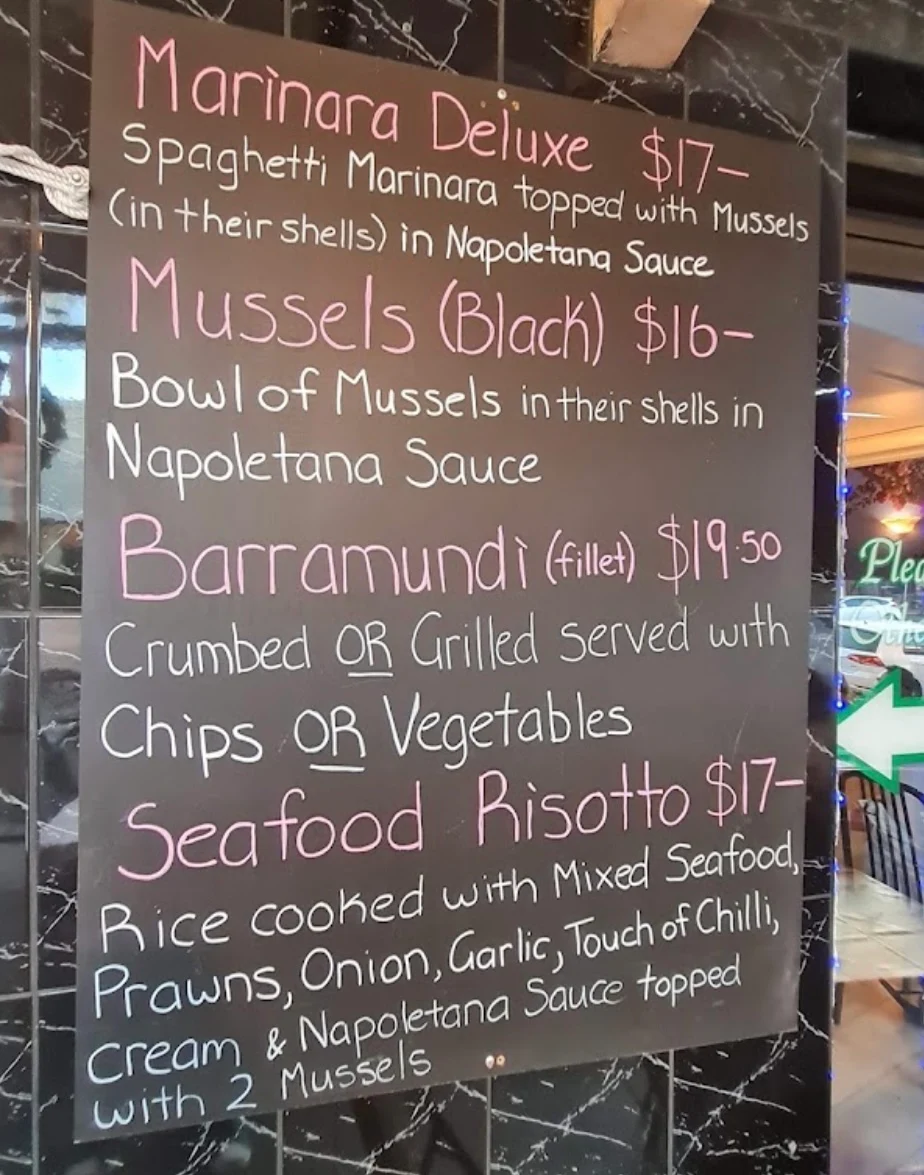 Marinara Deluxe $17-
Spaghetti Marinara topped with Mussels
(in their shells) in Napoletana Sauce
Mussels (Black) $16-
Bowl of Mussels in their shells in
Napoletana Sauce
Barramundi (fillet) $19.50
Crumbed OR Grilled served with
Chips OR Vegetables
Seafood Risotto $17-
Rice cooked with Mixed Seafood,
Prawns, Onion, Garlic, Touch of Chilli,
Cream & Napoletana Sauce topped
with 2 Mussels